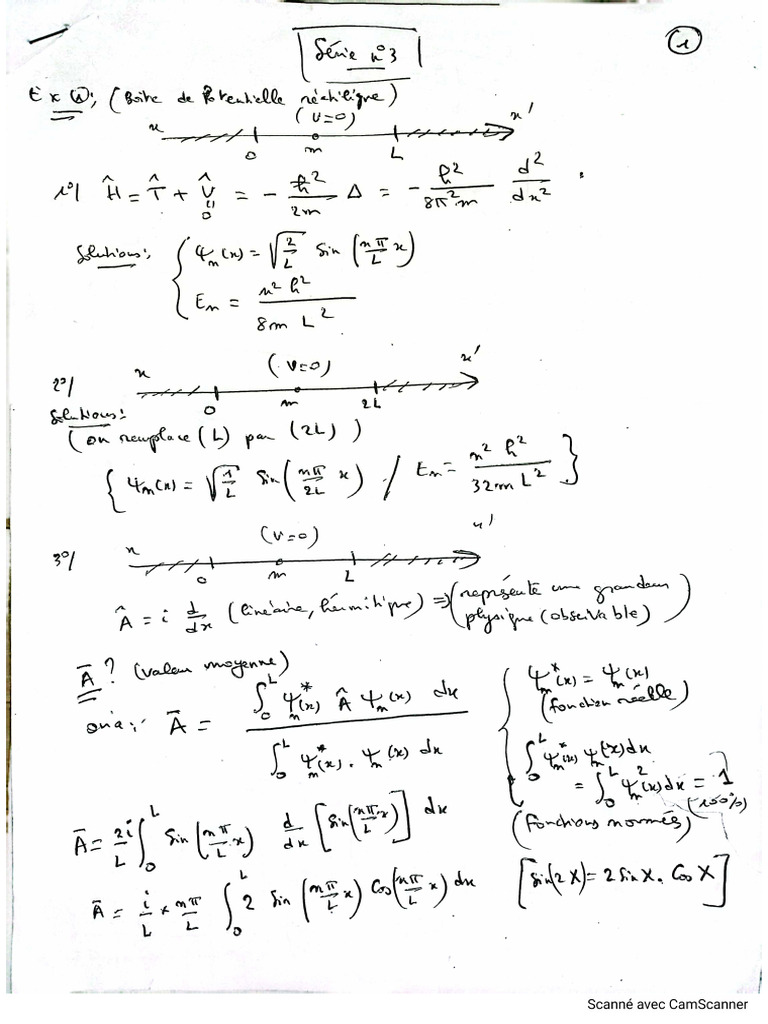 Série n°3
①
Ex ①: (Boîte de Potentielle réctiligne)
(V=0)
x 0 m L x'
1°/ Ĥ = T̂ + V̂ = - ħ²/2m Δ = - h²/8π²m d²/dx² .
0
Solutions: { Ψn(x) = √(2/L) Sin (nπ/L x)
En = n² h² / 8m L²
(V=0)
2°/ x 0 m 2L x'
Solutions:
(on remplace (L) par (2L))
{ Ψn(x) = √(1/L) Sin (nπ/2L x) / En = n² h² / 32m L² }
(V=0)
3°/ x 0 m L x'
Â = i d/dx (linéaire, hérmitique) ⇒ (représente une grandeur
physique (observable)
Ā ? (valeur moyenne)
on a: Ā = ∫₀ᴸ Ψn*(x) Â Ψn(x) dx / ∫₀ᴸ Ψn*(x) . Ψn(x) dx
{ Ψn*(x) = Ψn(x)
(fonction réelle)
∫₀ᴸ Ψn*(x) Ψn(x) dx
= ∫₀ᴸ Ψn²(x) dx = 1
(100%)
(fonctions normés)
Ā = 2i/L ∫₀ᴸ Sin (nπ/L x) d/dx [Sin (nπ/L x)] dx
Ā = i/L × nπ/L ∫₀ᴸ 2 Sin (nπ/L x) Cos (nπ/L x) dx [Sin(2X) = 2 Sin X . Cos X]
Scanné avec CamScanner